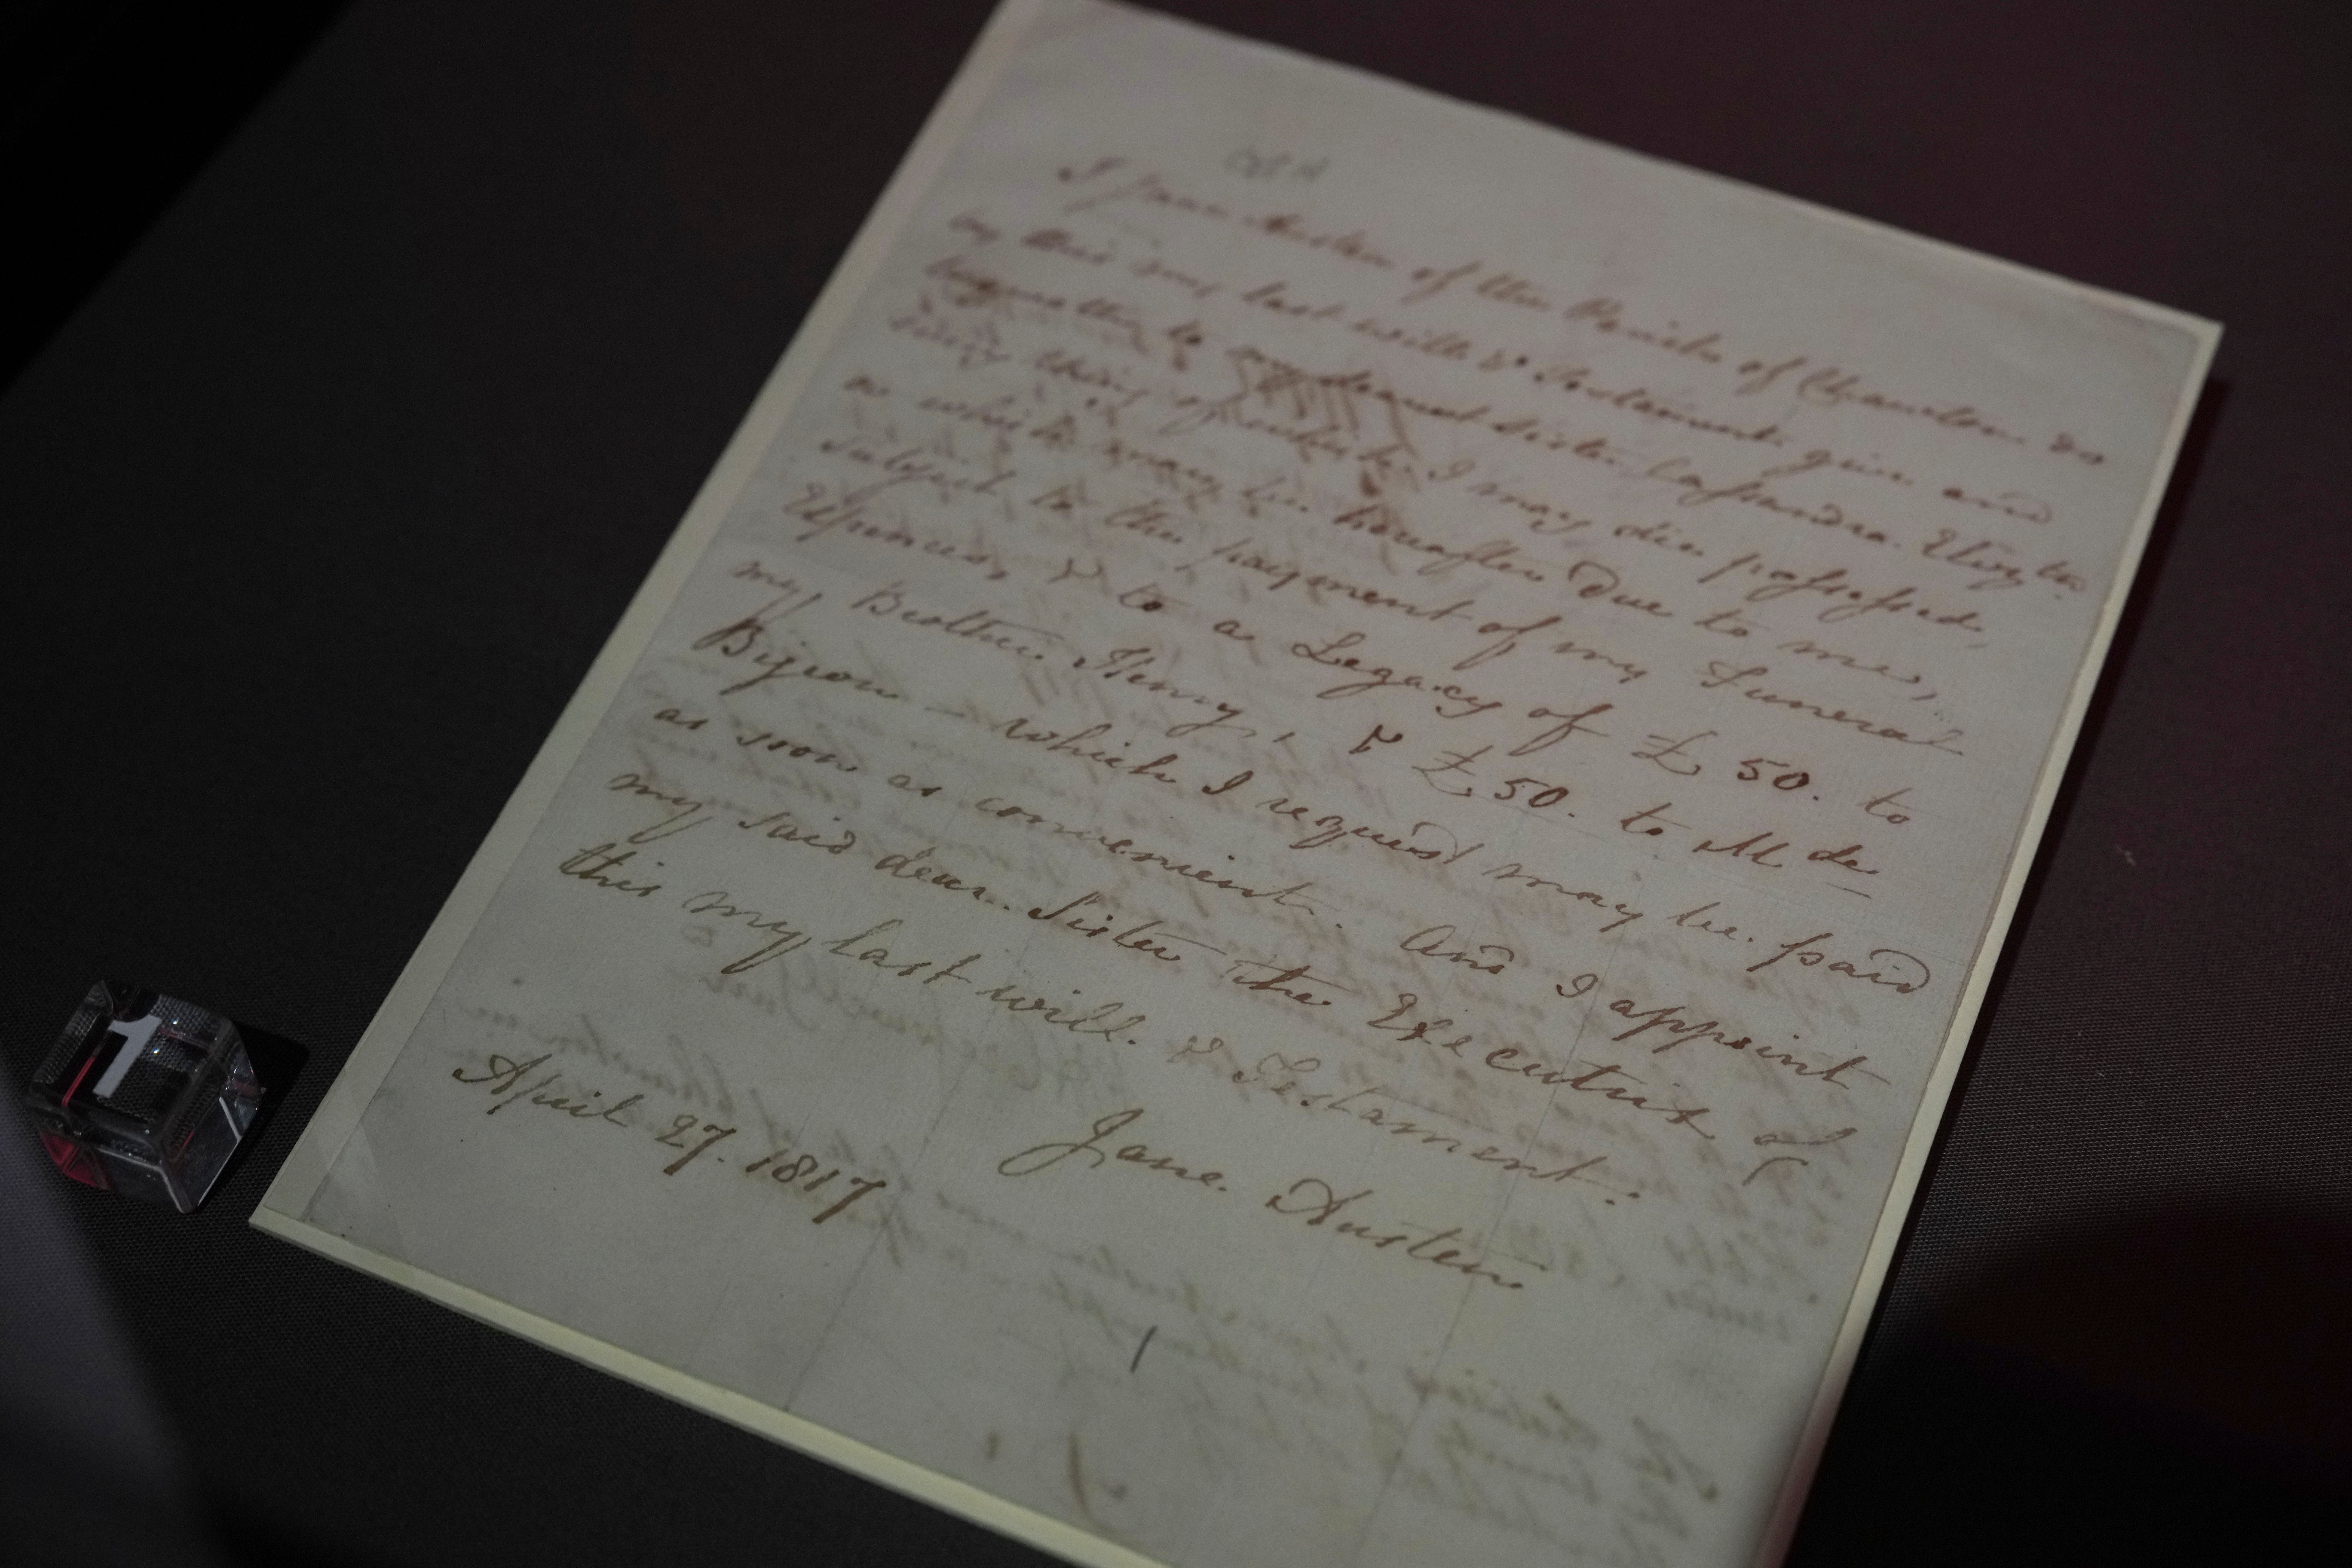 I Jane Austen of the Parish of Chawton do
by this my last will & Testament give and
bequeath to my dearest Sister Cassandra Elizth
every thing of which I may die possessed,
or which may be hereafter due to me,
subject to the payment of my Funeral
Expences, & to a Legacy of £50. to
my Brother Henry, & £50. to Mde
Bijeon - which I request may be paid
as soon as convenient. And I appoint
my said dear Sister the Executrix of
this my last will. & Testament.
Jane Austen
April 27. 1817
1